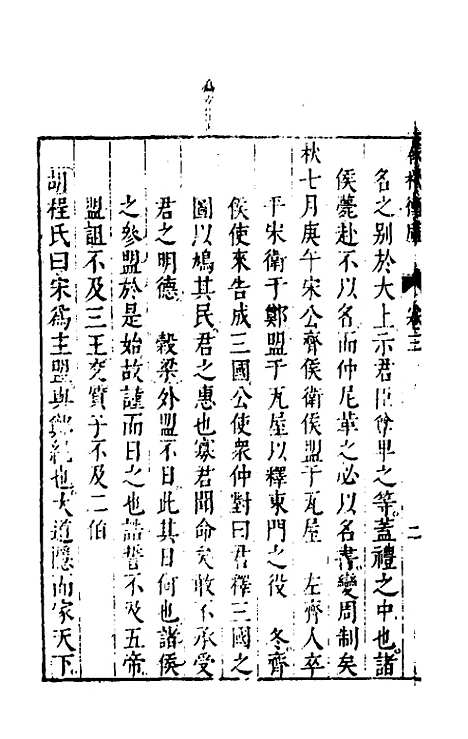 名之别於大上示君臣尊卑之等蓋禮之中也諸
侯薨赴不以名而仲尼革之必以名書變周制矣
秋七月庚午宋公齊侯衛侯盟于瓦屋　左齊人卒
平宋衛于鄭盟于瓦屋以釋東門之役　冬齊
侯使來告成三國公使衆仲對曰君釋三國之
圖以鳩其民君之惠也寡君聞命矣敢不承受
君之明德　穀梁外盟不日此其日何也諸侯
之參盟於是始故謹而日之也誥誓不及五帝
盟詛不及三王交質子不及二伯
胡程氏曰宋爲主盟與鄭絶也大道隱而家天下
卷三
二